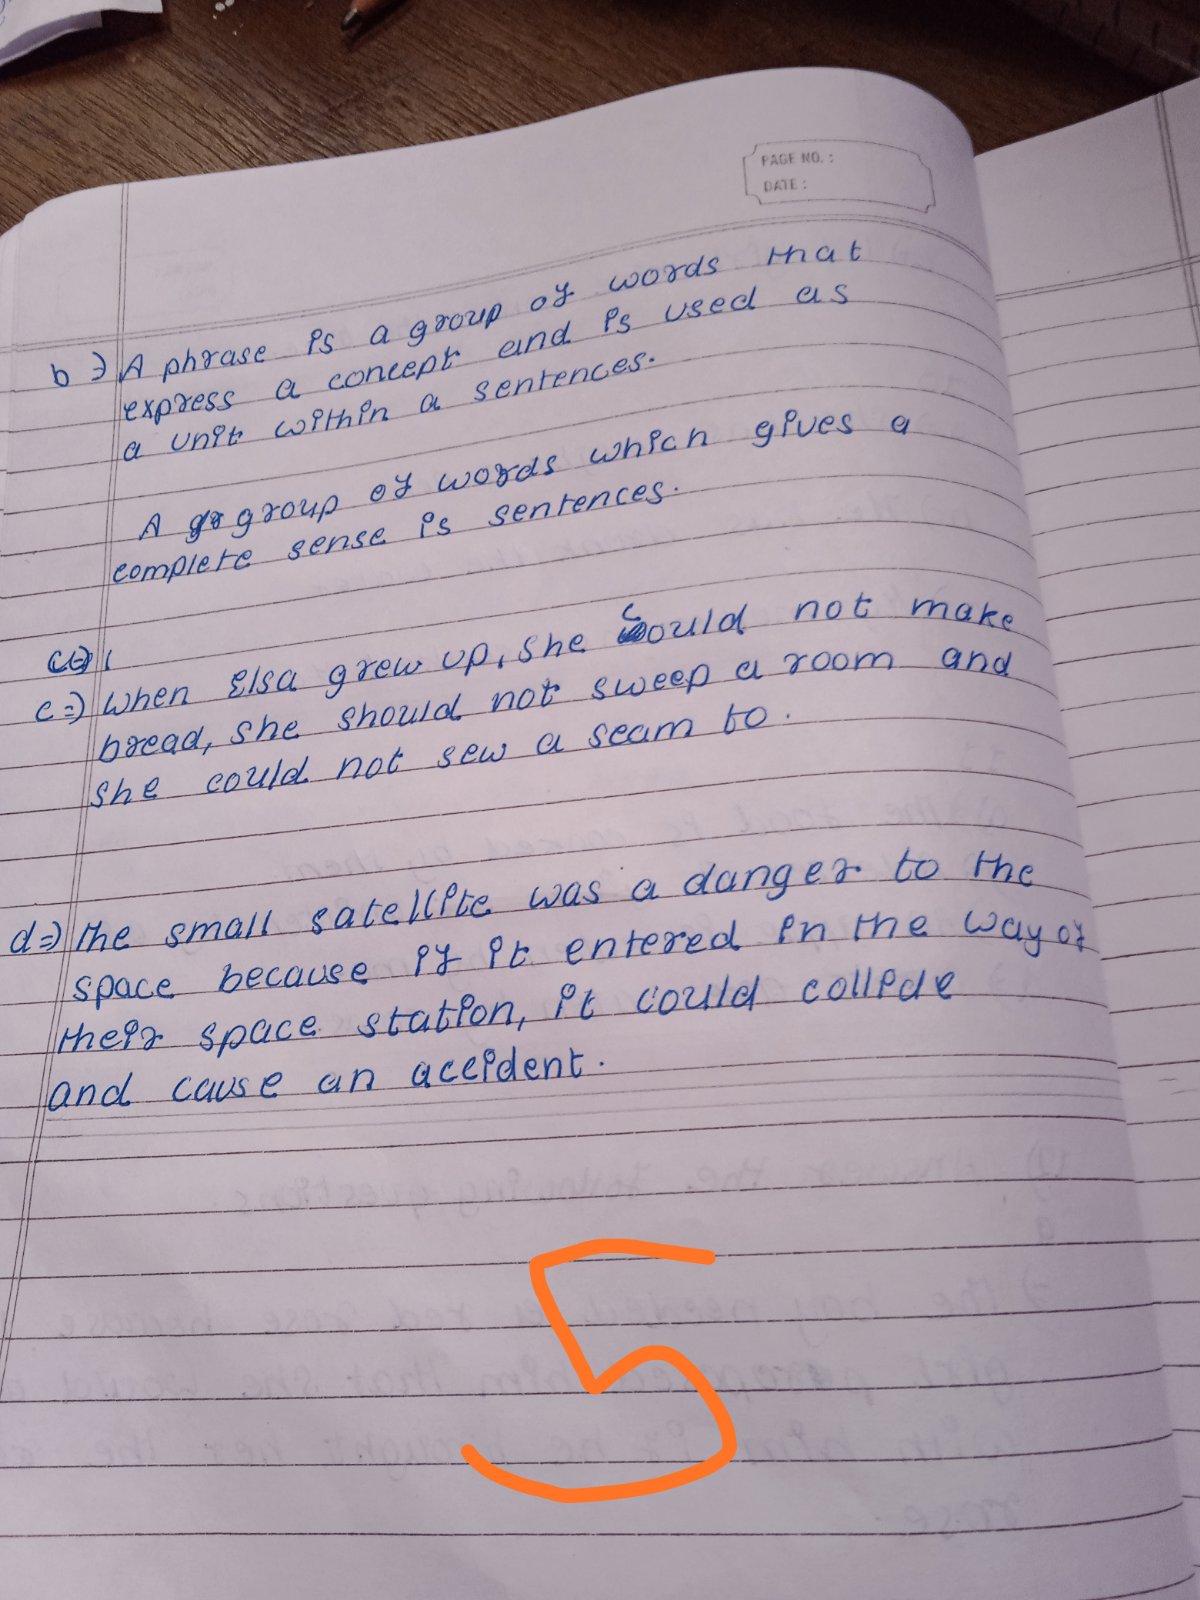 PAGE NO. :
DATE :
b => A phrase is a group of words that
express a concept and is used as
a unit within a sentences.
A group of words which gives a
complete sense is sentences.
c=>
c=> When Elsa grew up, she could not make
bread, she should not sweep a room and
she could not sew a seam to.
d=> The small satellite was a danger to the
space because if it entered in the way of
their space station, it could collide
and cause an accident.
5